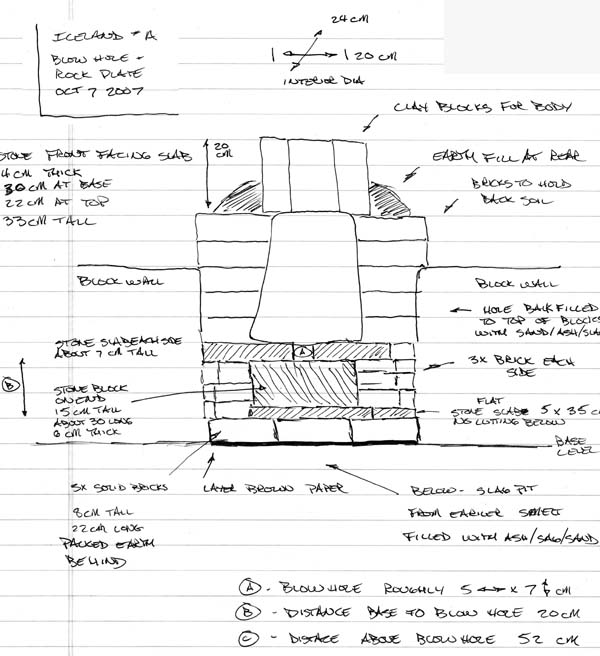 ICELAND # A
BLOW HOLE +
ROCK PLATE
OCT 7 2007
24 CM
20 CM
INTERIOR DIA
CLAY BLOCKS FOR BODY
STONE FRONT FACING SLAB
4 CM THICK
30 CM AT BASE
22 CM AT TOP
33 CM TALL
20
CM
EARTH FILL AT REAR
BRICKS TO HOLD
BACK SOIL
BLOCK WALL
BLOCK WALL
HOLE BACK FILLED
TO TOP OF BLOCKS
WITH SAND/ASH/SLA
STONE SLAB EACH SIDE
ABOUT 7 CM TALL
A
3X BRICK EACH
SIDE
B
STONE BLOCK
ON END
15 CM TALL
ABOUT 30 LONG
6 CM THICK
FLAT
STONE SLABS 5 X 35 C
NO LUTING BELOW
BASE
LEVEL
5X SOLID BRICKS
8 CM TALL
22 CM LONG
PACKED EARTH
BEHIND
LAYER BROWN PAPER
BELOW - SLAG PIT
FROM EARILER SMELT
FILLED WITH ASH/SAG/SAND
A - BLOW HOLE ROUGHLY 5 ↔ X 7 ↕ CM
B - DISTANCE BASE TO BLOW HOLE 20 CM
C - DISTACE ABOVE BLOW HOLE 52 CM